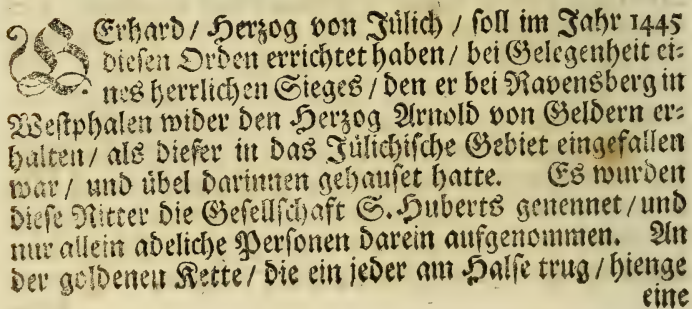 GErhard / Herzog von Jülich / soll im Jahr 1445
diesen Orden errichtet haben / bei Gelegenheit ei=
nes herrlichen Sieges / den er bei Ravensberg in
Westphalen wider den Herzog Arnold von Geldern er=
halten / als dieser in das Jülichische Gebiet eingefallen
war / und übel darinnen gehauset hatte. Es wurden
diese Ritter die Gesellschaft S. Huberts genennet / und
nur allein adeliche Personen darein aufgenommen. An
der goldenen Kette / die ein jeder am Halse trug / hienge
eine